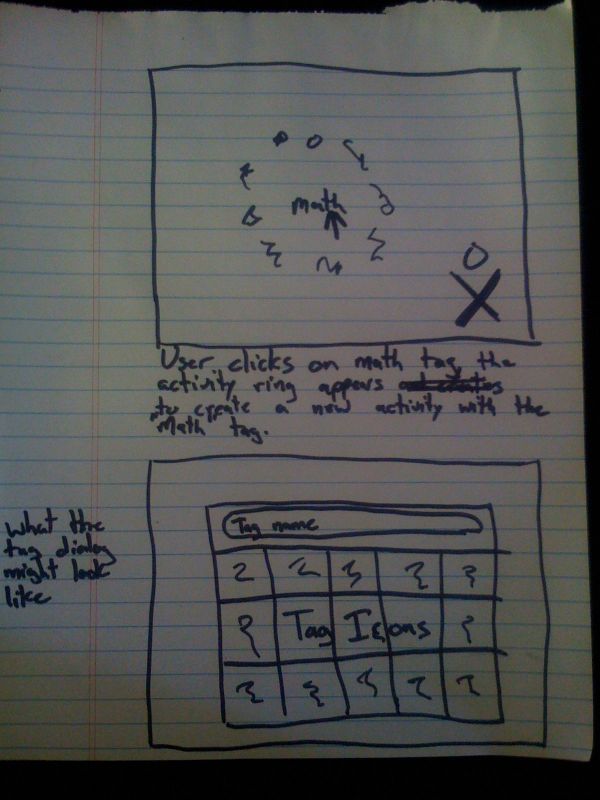 math
User clicks on math tag, the
activity ring appears
to create a new activity with the
"Math" tag.
what the
tag dialog
might look
like
Tag name
Tag Icons